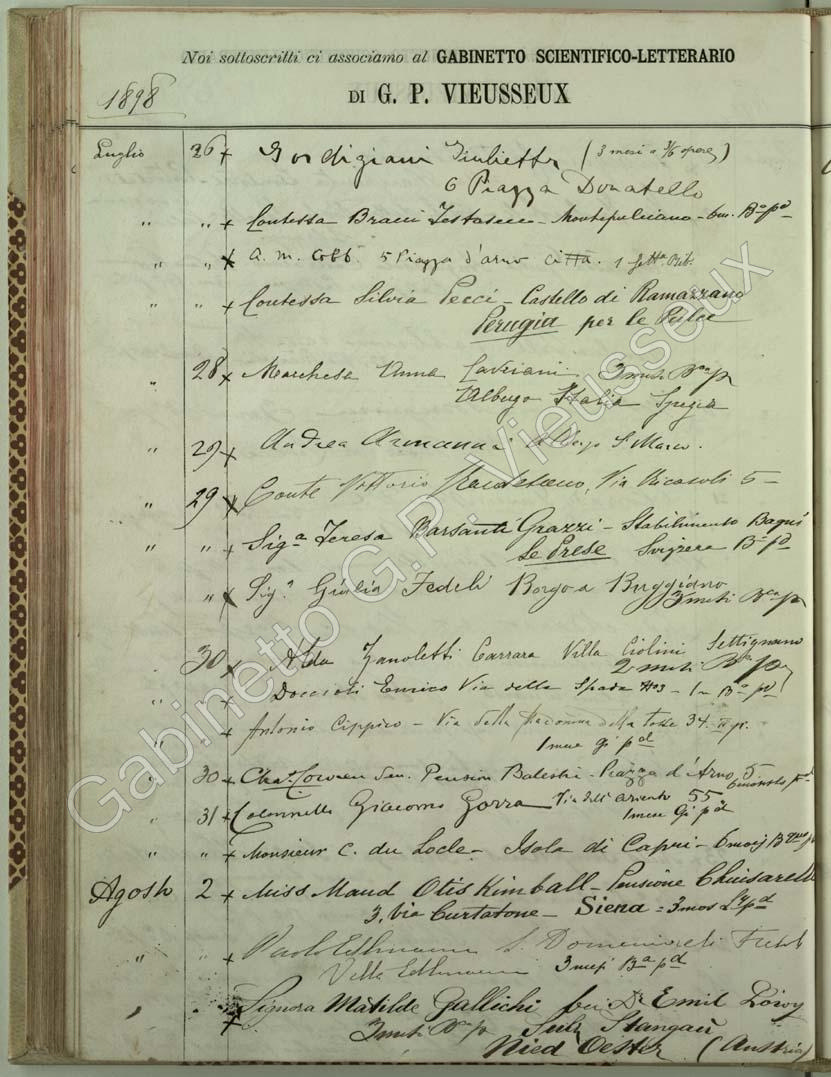 Noi sottoscritti ci associamo al GABINETTO SCIENTIFICO-LETTERARIO
DI G. P. VIEUSSEUX
1898
Luglio 26 + Gordigiani Giulietta (3 mesi a 3/6 opere)
6 Piazza Donatello
" " + Contessa Bracci Testasecca - Montepulciano - 6m. Bª pd
" " x A. M. Cobb. 5 Piazza d'Arno Città. 1
" " + Contessa Silvia Pecci - Castello di Ramazzano
Perugia per le Pulci
" 28 x Marchesa Anna Cavriani 3 months
Albergo Italia Spezia
" 29 + Andrea Armanni Albergo S. Marco.
" 29 x Conte Vittorio Via Ricasoli 5 -
" " + Sigª Teresa Barsanti Grazzi - Stabilimento Bagni
Le Prese Svizzera Bª pd
" x Sigª Giulia Fedeli Borgo a Buggiano
3 months
30 x Alda Zanoletti Carrara Villa Ciolini Settignano
2 months
" + Doccioli Enrico Via della Spada No 3 - 1m Bª pd
" + Antonio Cippico - Via della Madonna della Tosse 34. II p.
1 mese Gi pd
" 30 + Pension Balestri - Piazza d'Arno, 5
" 31 + Colonnello Giacomo Gorra Via dell' Ariento 55
1 mese Gi pd
" " + Monsieur C. du Locle - Isola di Capri - 6 mois
Agosto 2 + Miss Maud Otis Kimball - Pensione Chiusarelli
3, Via Curtatone - Siena = 3 mos pd
" " + Paolo Edlmann S. Domenico di
Villa Edlmann 3 mesi Bª pd
+ Signora Matilde Gallichi bei Dr Emil Löwy
3 months Stangau
Nied Oester (Austria)
Gabinetto G.P. Vieusseux